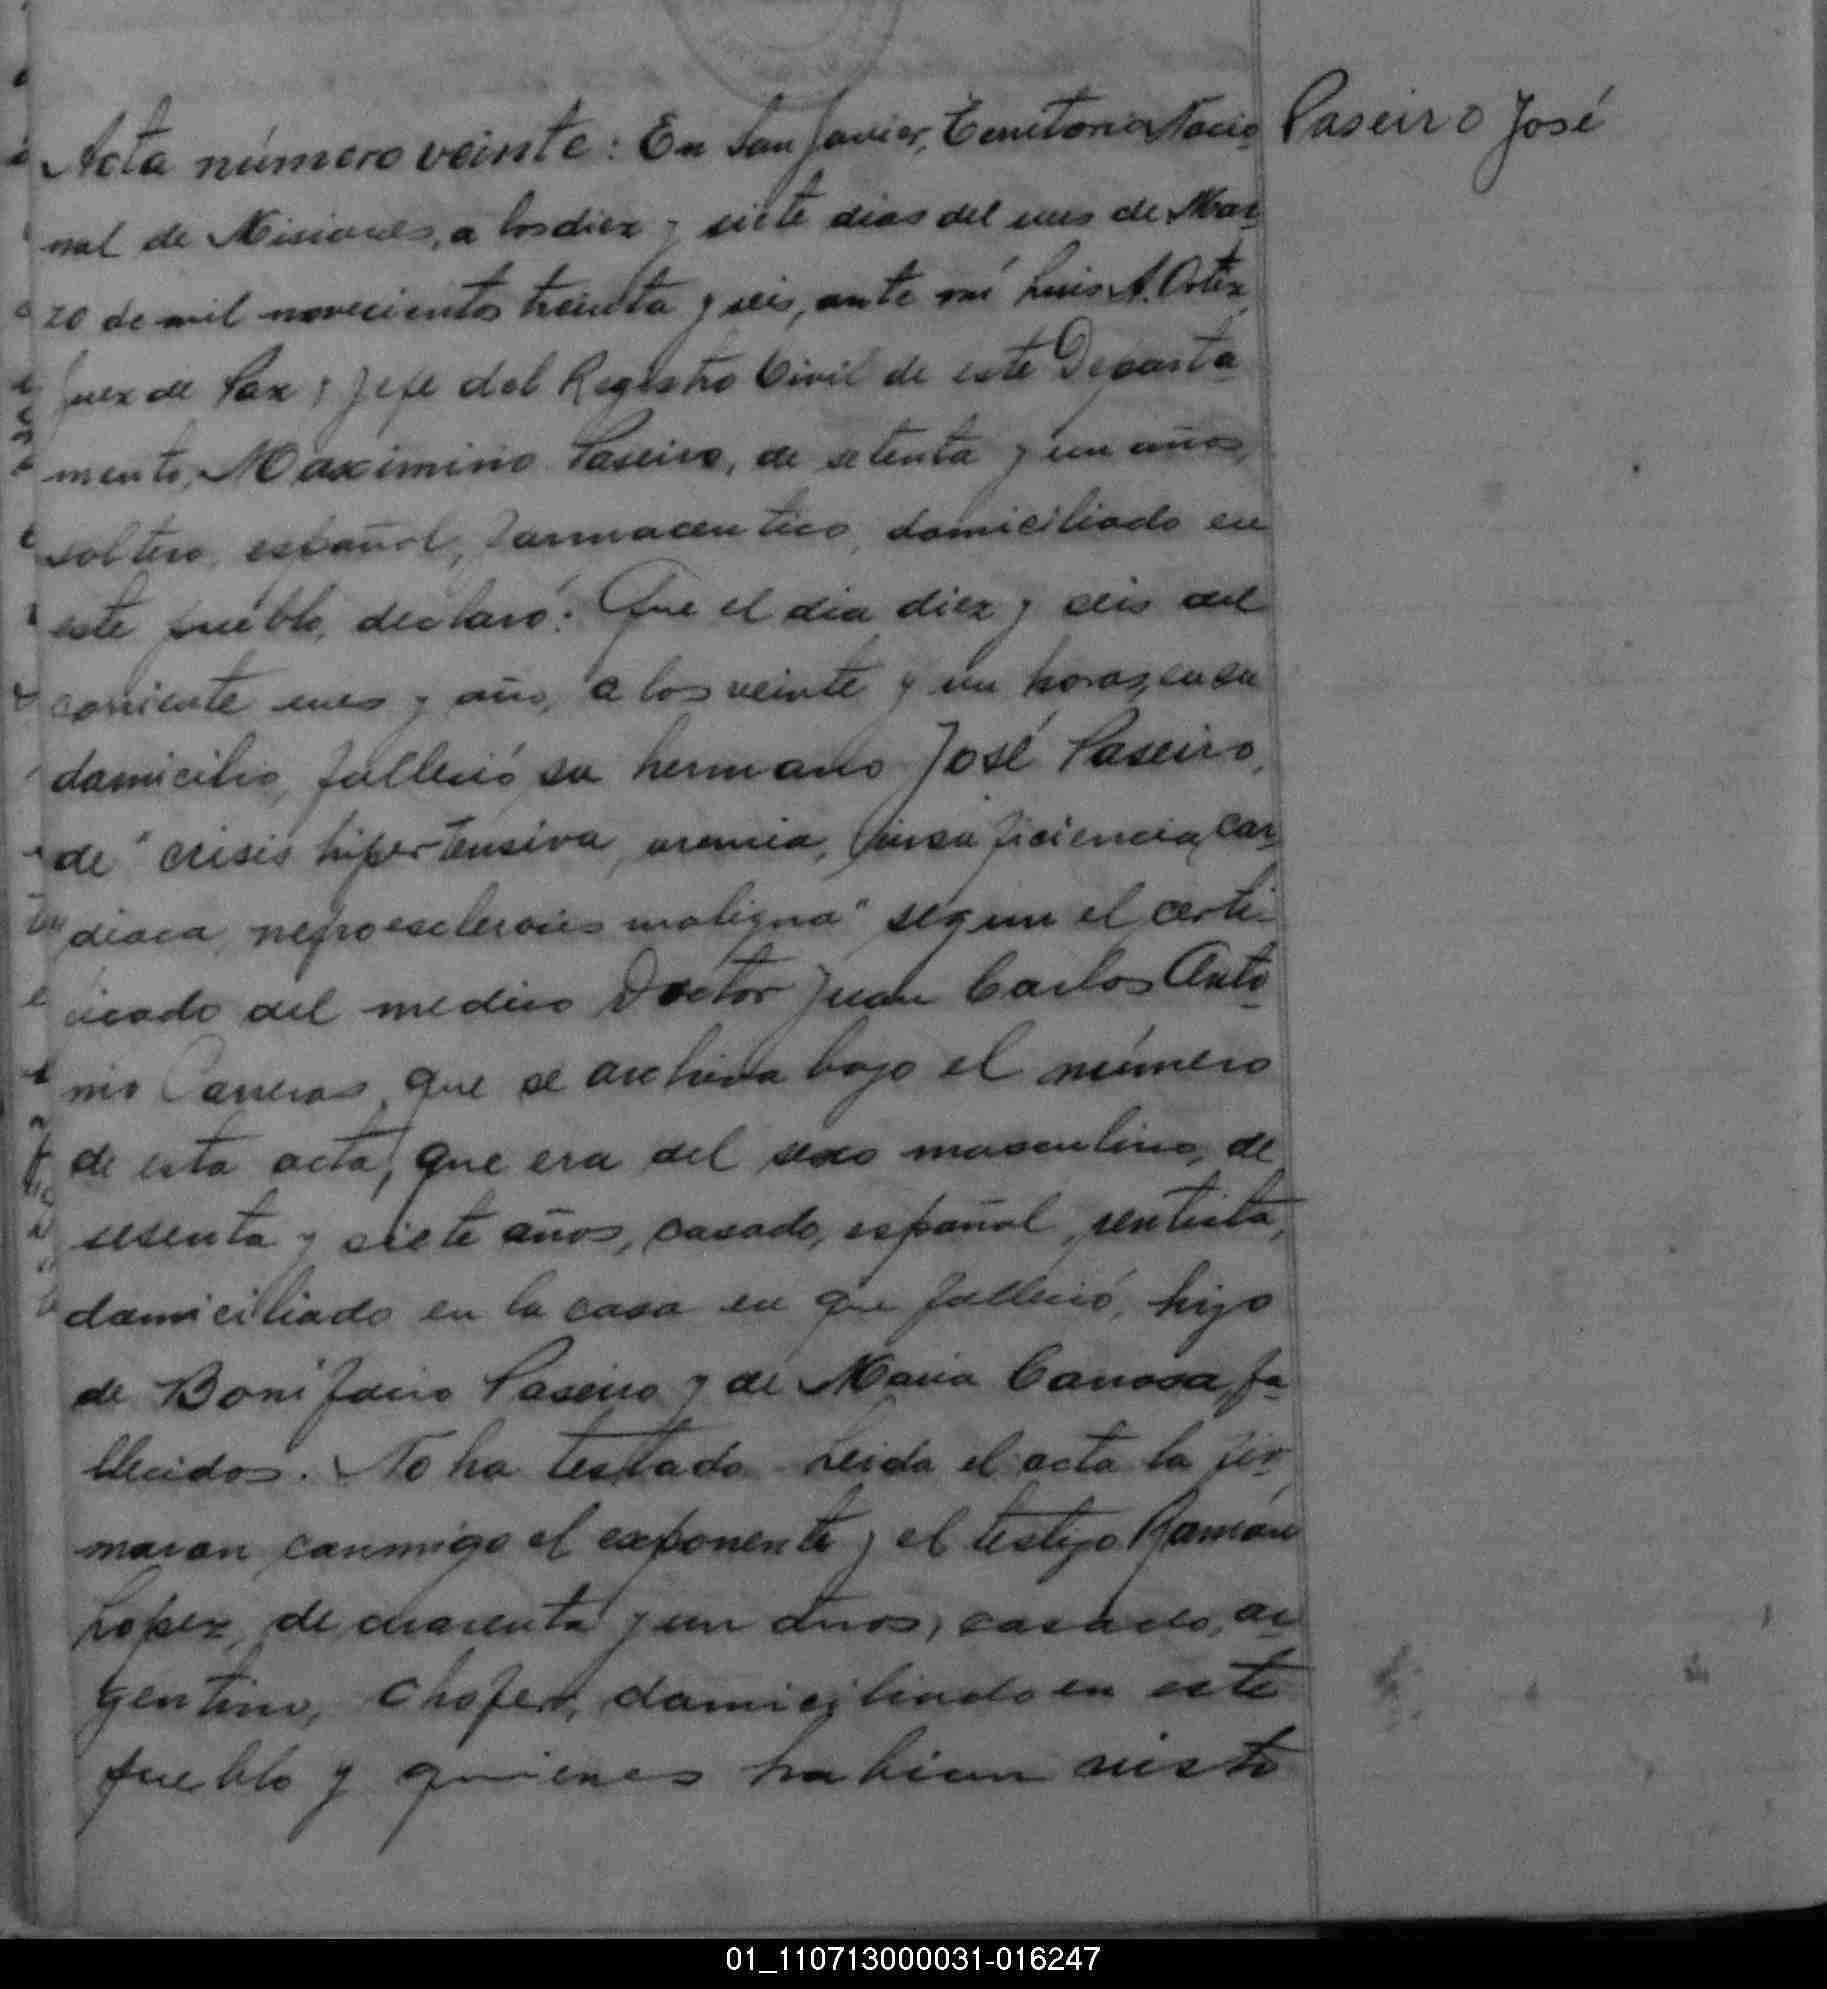 Paseiro José
Acta número veinte: En San Javier, Territorio Nacio-
nal de Misiones, a los diez y siete dias del mes de Mar-
zo de mil novecientos treinta y seis, ante mi Luis A. Ortiz,
Juez de Paz y Jefe del Registro Civil de este Departa-
mento, Maximino Paseiro, de setenta y un años,
soltero, español, farmaceutico, domiciliado en
este pueblo, declaró: Que el dia diez y seis del
corriente mes y año, a las veinte y un horas, en su
domicilio, falleció su hermano José Paseiro,
de "crisis hipertensiva, uremia, insuficiencia car-
diaca, nefroesclerosis maligna" segun el certi-
icado del medico Doctor Juan Carlos Anto-
nio Carreras, que se archiva bajo el número
de esta acta; que era del sexo masculino, de
sesenta y siete años, casado, español, rentista,
domiciliado en la casa en que falleció, hijo
de Bonifacio Paseiro y de Maria Canosa, fa-
llecidos. No ha testado. Leida el acta la fir-
maron conmigo el exponente y el testigo Ramón
Lopez, de cuarenta y un años, casado, ar-
gentino, chofer, domiciliado en este
pueblo y quienes habian visto
01_110713000031-016247